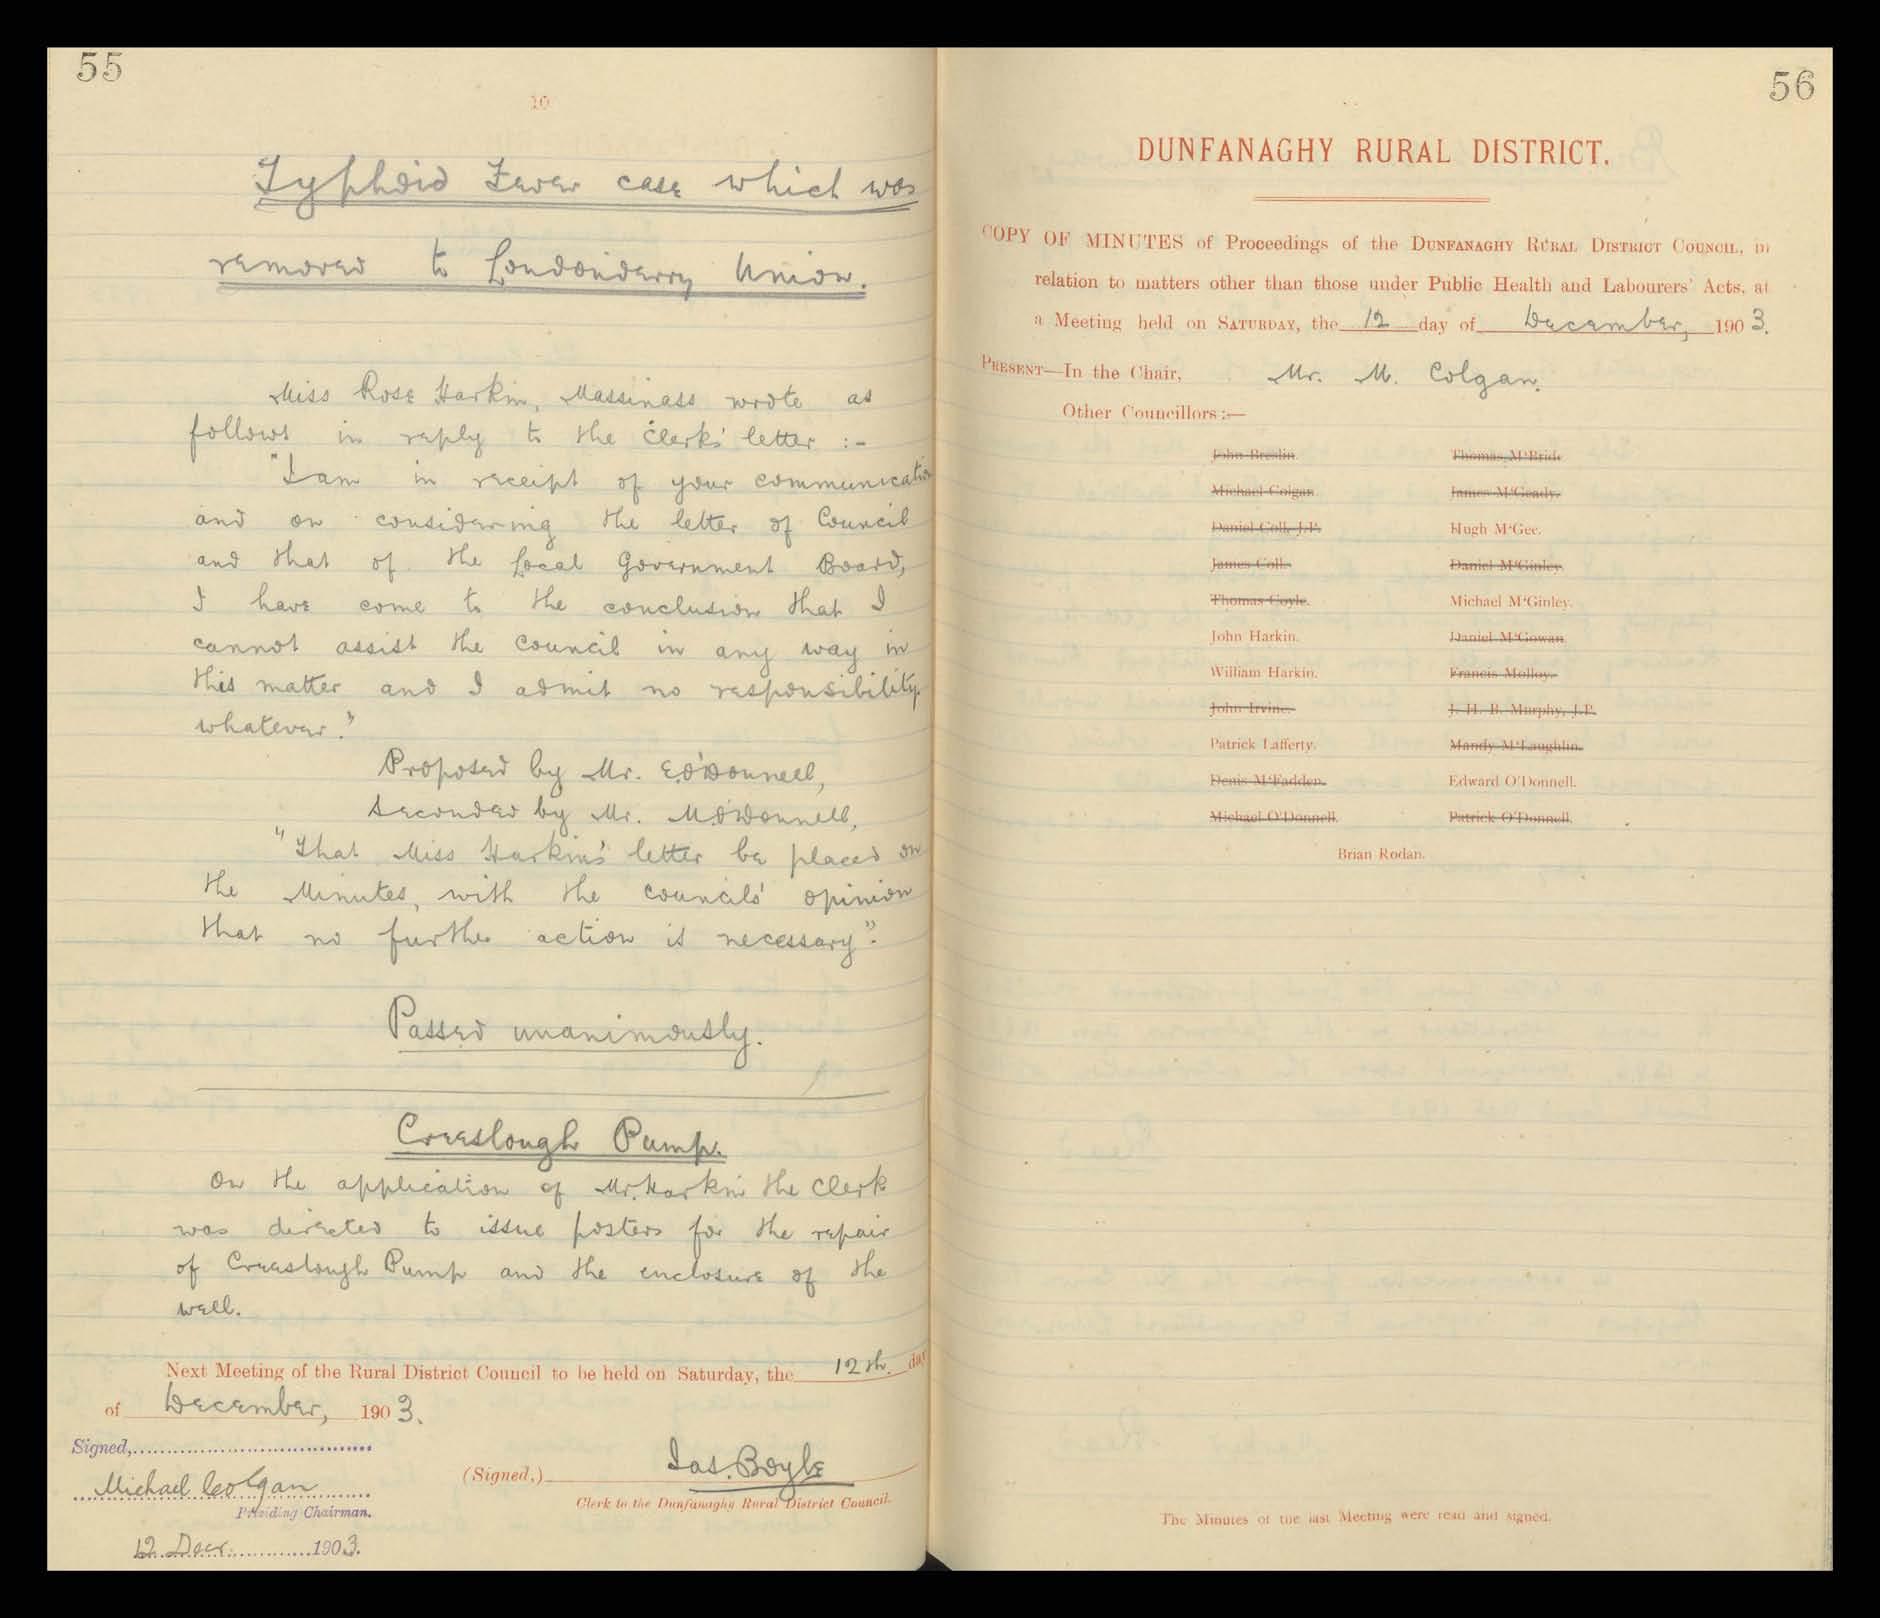 55
10
Typhoid Fever case which was
removed to Londonderry Union.
Miss Rose Harkin, Massinass wrote as
follows in reply to the Clerks' letter :-
"I am in receipt of your communication
and on considering the letter of Council
and that of the Local Government Board,
I have come to the conclusion that I
cannot assist the Council in any way in
this matter and I admit no responsibility
whatever."
Proposed by Mr. E. O'Donnell,
Seconded by Mr. M. O'Donnell,
"That Miss Harkin's letter be placed on
the Minutes, with the Council's opinion
that no further action is necessary".
Passed unanimously.
Creeslough Pump.
On the application of Mr. Harkin the Clerk
was directed to issue posters for the repair
of Creeslough Pump and the enclosure of the
well.
Next Meeting of the Rural District Council to be held on Saturday, the 12th. day
of December, 1903.
Signed,
Michael Colgan
Presiding Chairman.
12 Decr. 1903.
(Signed,) Jas. Boyle
Clerk to the Dunfanaghy Rural District Council.
56
DUNFANAGHY RURAL DISTRICT.
COPY OF MINUTES of Proceedings of the DUNFANAGHY RURAL DISTRICT COUNCIL, in
relation to matters other than those under Public Health and Labourers' Acts, at
a Meeting held on SATURDAY, the 12 day of December, 1903.
PRESENT—In the Chair, Mr. M. Colgan.
Other Councillors :—
John Breslin. Thomas M'Bride
Michael Colgan James M'Geady.
Daniel Coll, J.P. Hugh M'Gee.
James Coll. Daniel M'Ginley.
Thomas Coyle. Michael M'Ginley.
John Harkin. Daniel M'Gowan.
William Harkin. Francis Molloy.
John Irvine. J. H. B. Murphy, J.P.
Patrick Lafferty. Mandy M'Laughlin.
Denis M'Fadden. Edward O'Donnell.
Michael O'Donnell. Patrick O'Donnell.
Brian Rodan.
The Minutes of the last Meeting were read and signed.